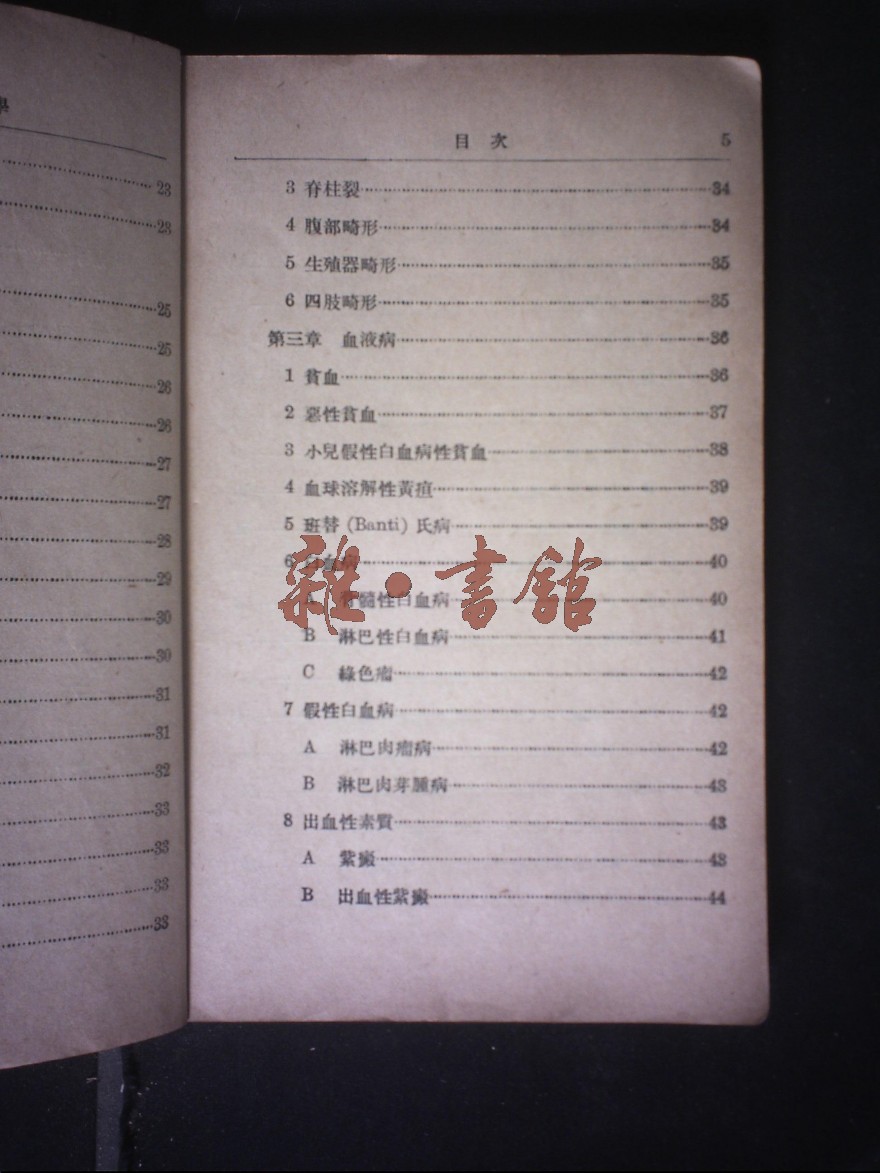 學
23
23
25
25
26
26
27
27
28
29
30
30
31
31
32
33
33
33
33
目次 5
3 脊柱裂 34
4 腹部畸形 34
5 生殖器畸形 35
6 四肢畸形 35
第三章 血液病 36
1 貧血 36
2 惡性貧血 37
3 小兒假性白血病性貧血 38
4 血球溶解性黃疸 39
5 班替 (Banti) 氏病 39
6 白血病 40
A 骨髓性白血病 40
B 淋巴性白血病 41
C 綠色瘤 42
7 假性白血病 42
A 淋巴肉瘤病 42
B 淋巴肉芽腫病 43
8 出血性素質 43
A 紫癜 43
B 出血性紫癜 44
雜·書館